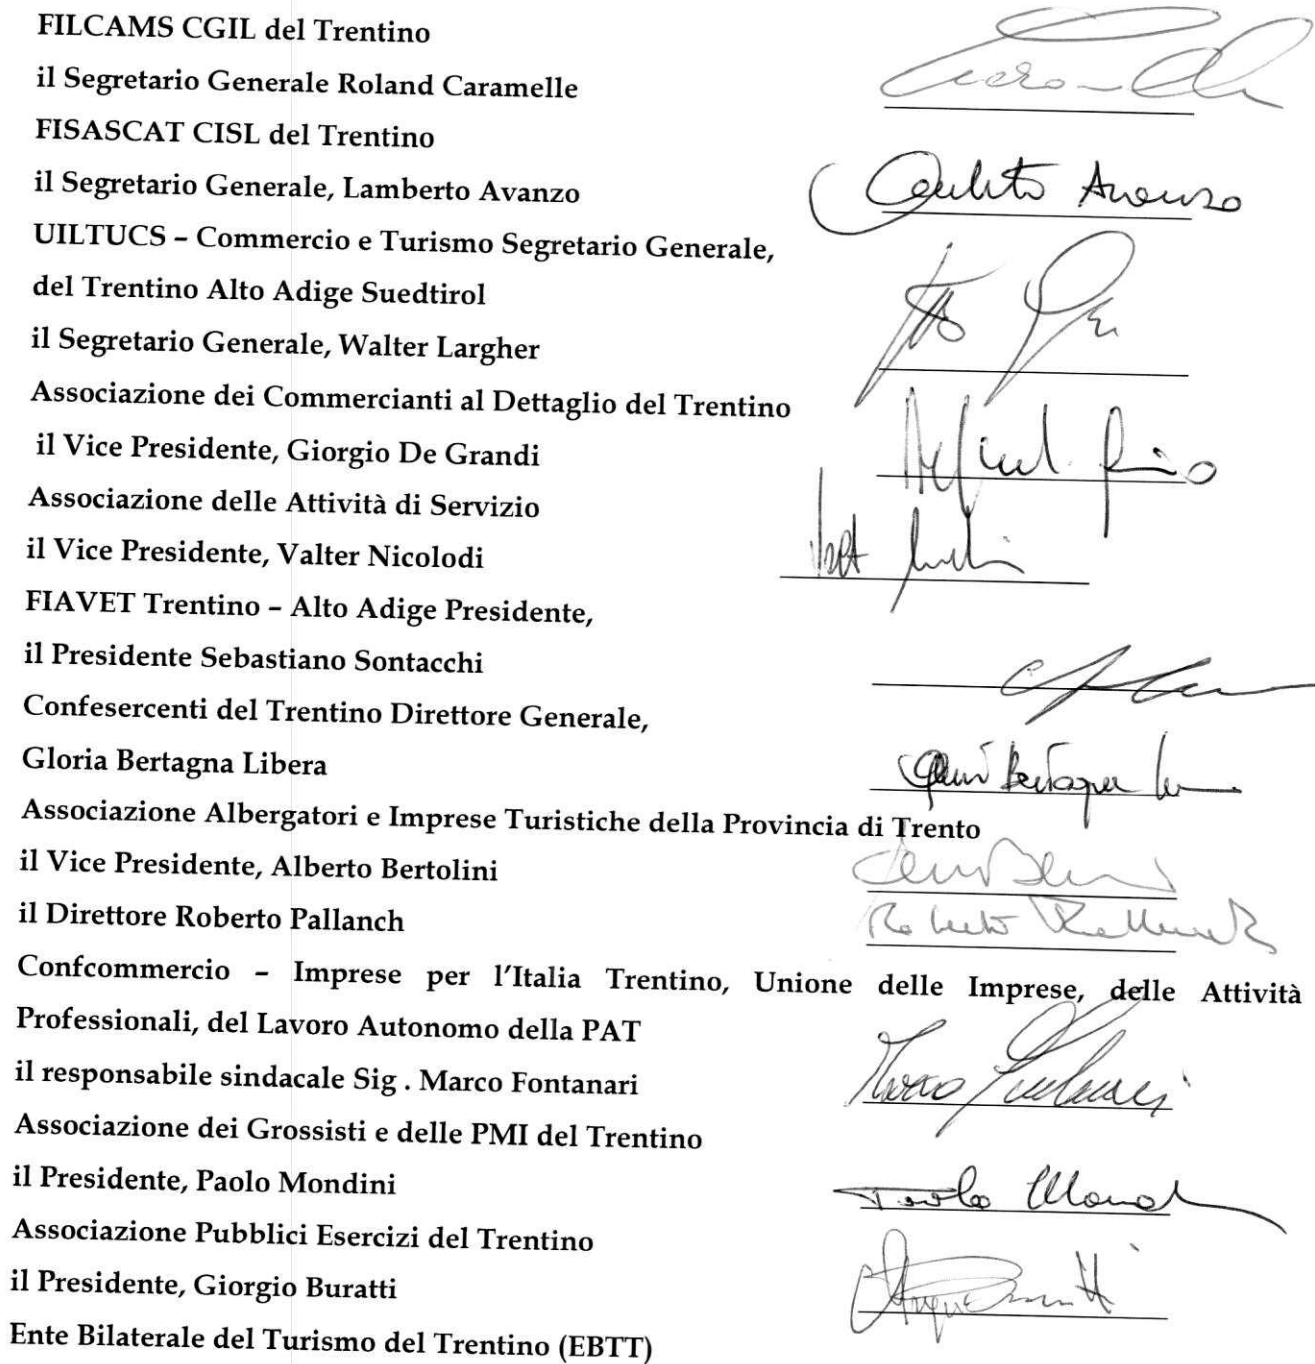 FILCAMS CGIL del Trentino
il Segretario Generale Roland Caramelle
FISASCAT CISL del Trentino
il Segretario Generale, Lamberto Avanzo
Avanzo
UILTUCS – Commercio e Turismo Segretario Generale,
del Trentino Alto Adige Suedtirol
il Segretario Generale, Walter Largher
Associazione dei Commercianti al Dettaglio del Trentino
il Vice Presidente, Giorgio De Grandi
Associazione delle Attività di Servizio
il Vice Presidente, Valter Nicolodi
FIAVET Trentino – Alto Adige Presidente,
il Presidente Sebastiano Sontacchi
Confesercenti del Trentino Direttore Generale,
Gloria Bertagna Libera
Associazione Albergatori e Imprese Turistiche della Provincia di Trento
il Vice Presidente, Alberto Bertolini
il Direttore Roberto Pallanch
Roberto Pallanch
Confcommercio – Imprese per l'Italia Trentino, Unione delle Imprese, delle Attività
Professionali, del Lavoro Autonomo della PAT
il responsabile sindacale Sig . Marco Fontanari
Marco Fontanari
Associazione dei Grossisti e delle PMI del Trentino
il Presidente, Paolo Mondini
Paolo
Associazione Pubblici Esercizi del Trentino
il Presidente, Giorgio Buratti
Ente Bilaterale del Turismo del Trentino (EBTT)